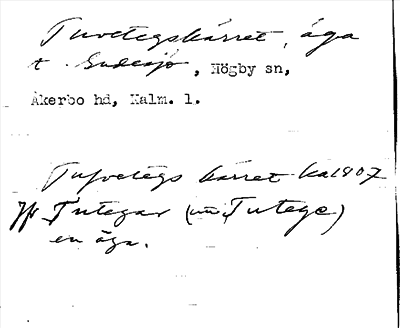 Tuvetegskärret, äga
t. Gudesjö, Högby sn,
Åkerbo hd, Kalm. l.
Tufvetegs kärret ha1807
Jfr Tutegar (un Tutege)
en äga.